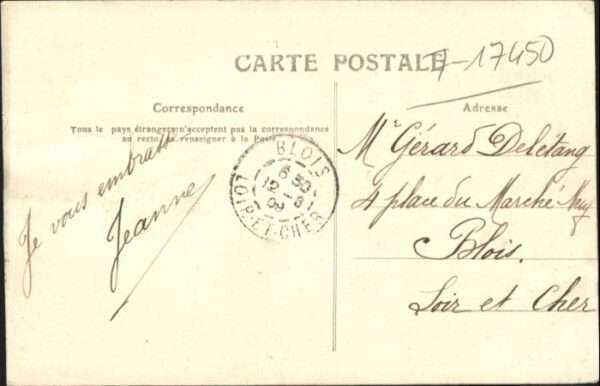 CARTE POSTALE
7-17450
Correspondance
Tous les pays étrangers n'acceptent pas la correspondance
au recto. Se renseigner à la Poste.
Je vous embrasse
Jeanne
BLOIS
LOIR-ET-CHER
Adresse
Mr Gérard Delétang
4 place du Marché
Blois.
Loir et Cher